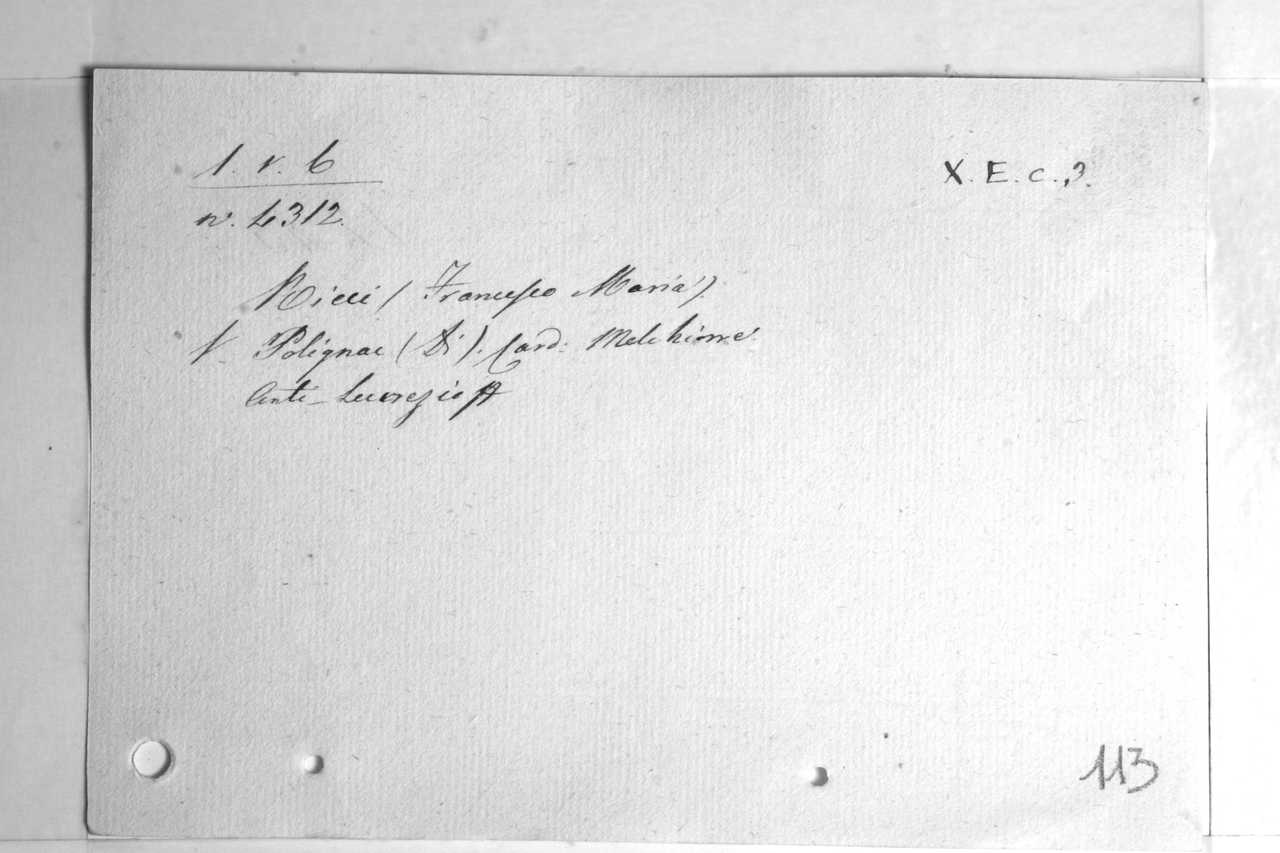 1. v. 6
X. E. c. 3.
n. 4312.
Ricci (Francesco Maria)
V. Polignac (Di). Card: Melchiorre
Anti-Lucrezio
113